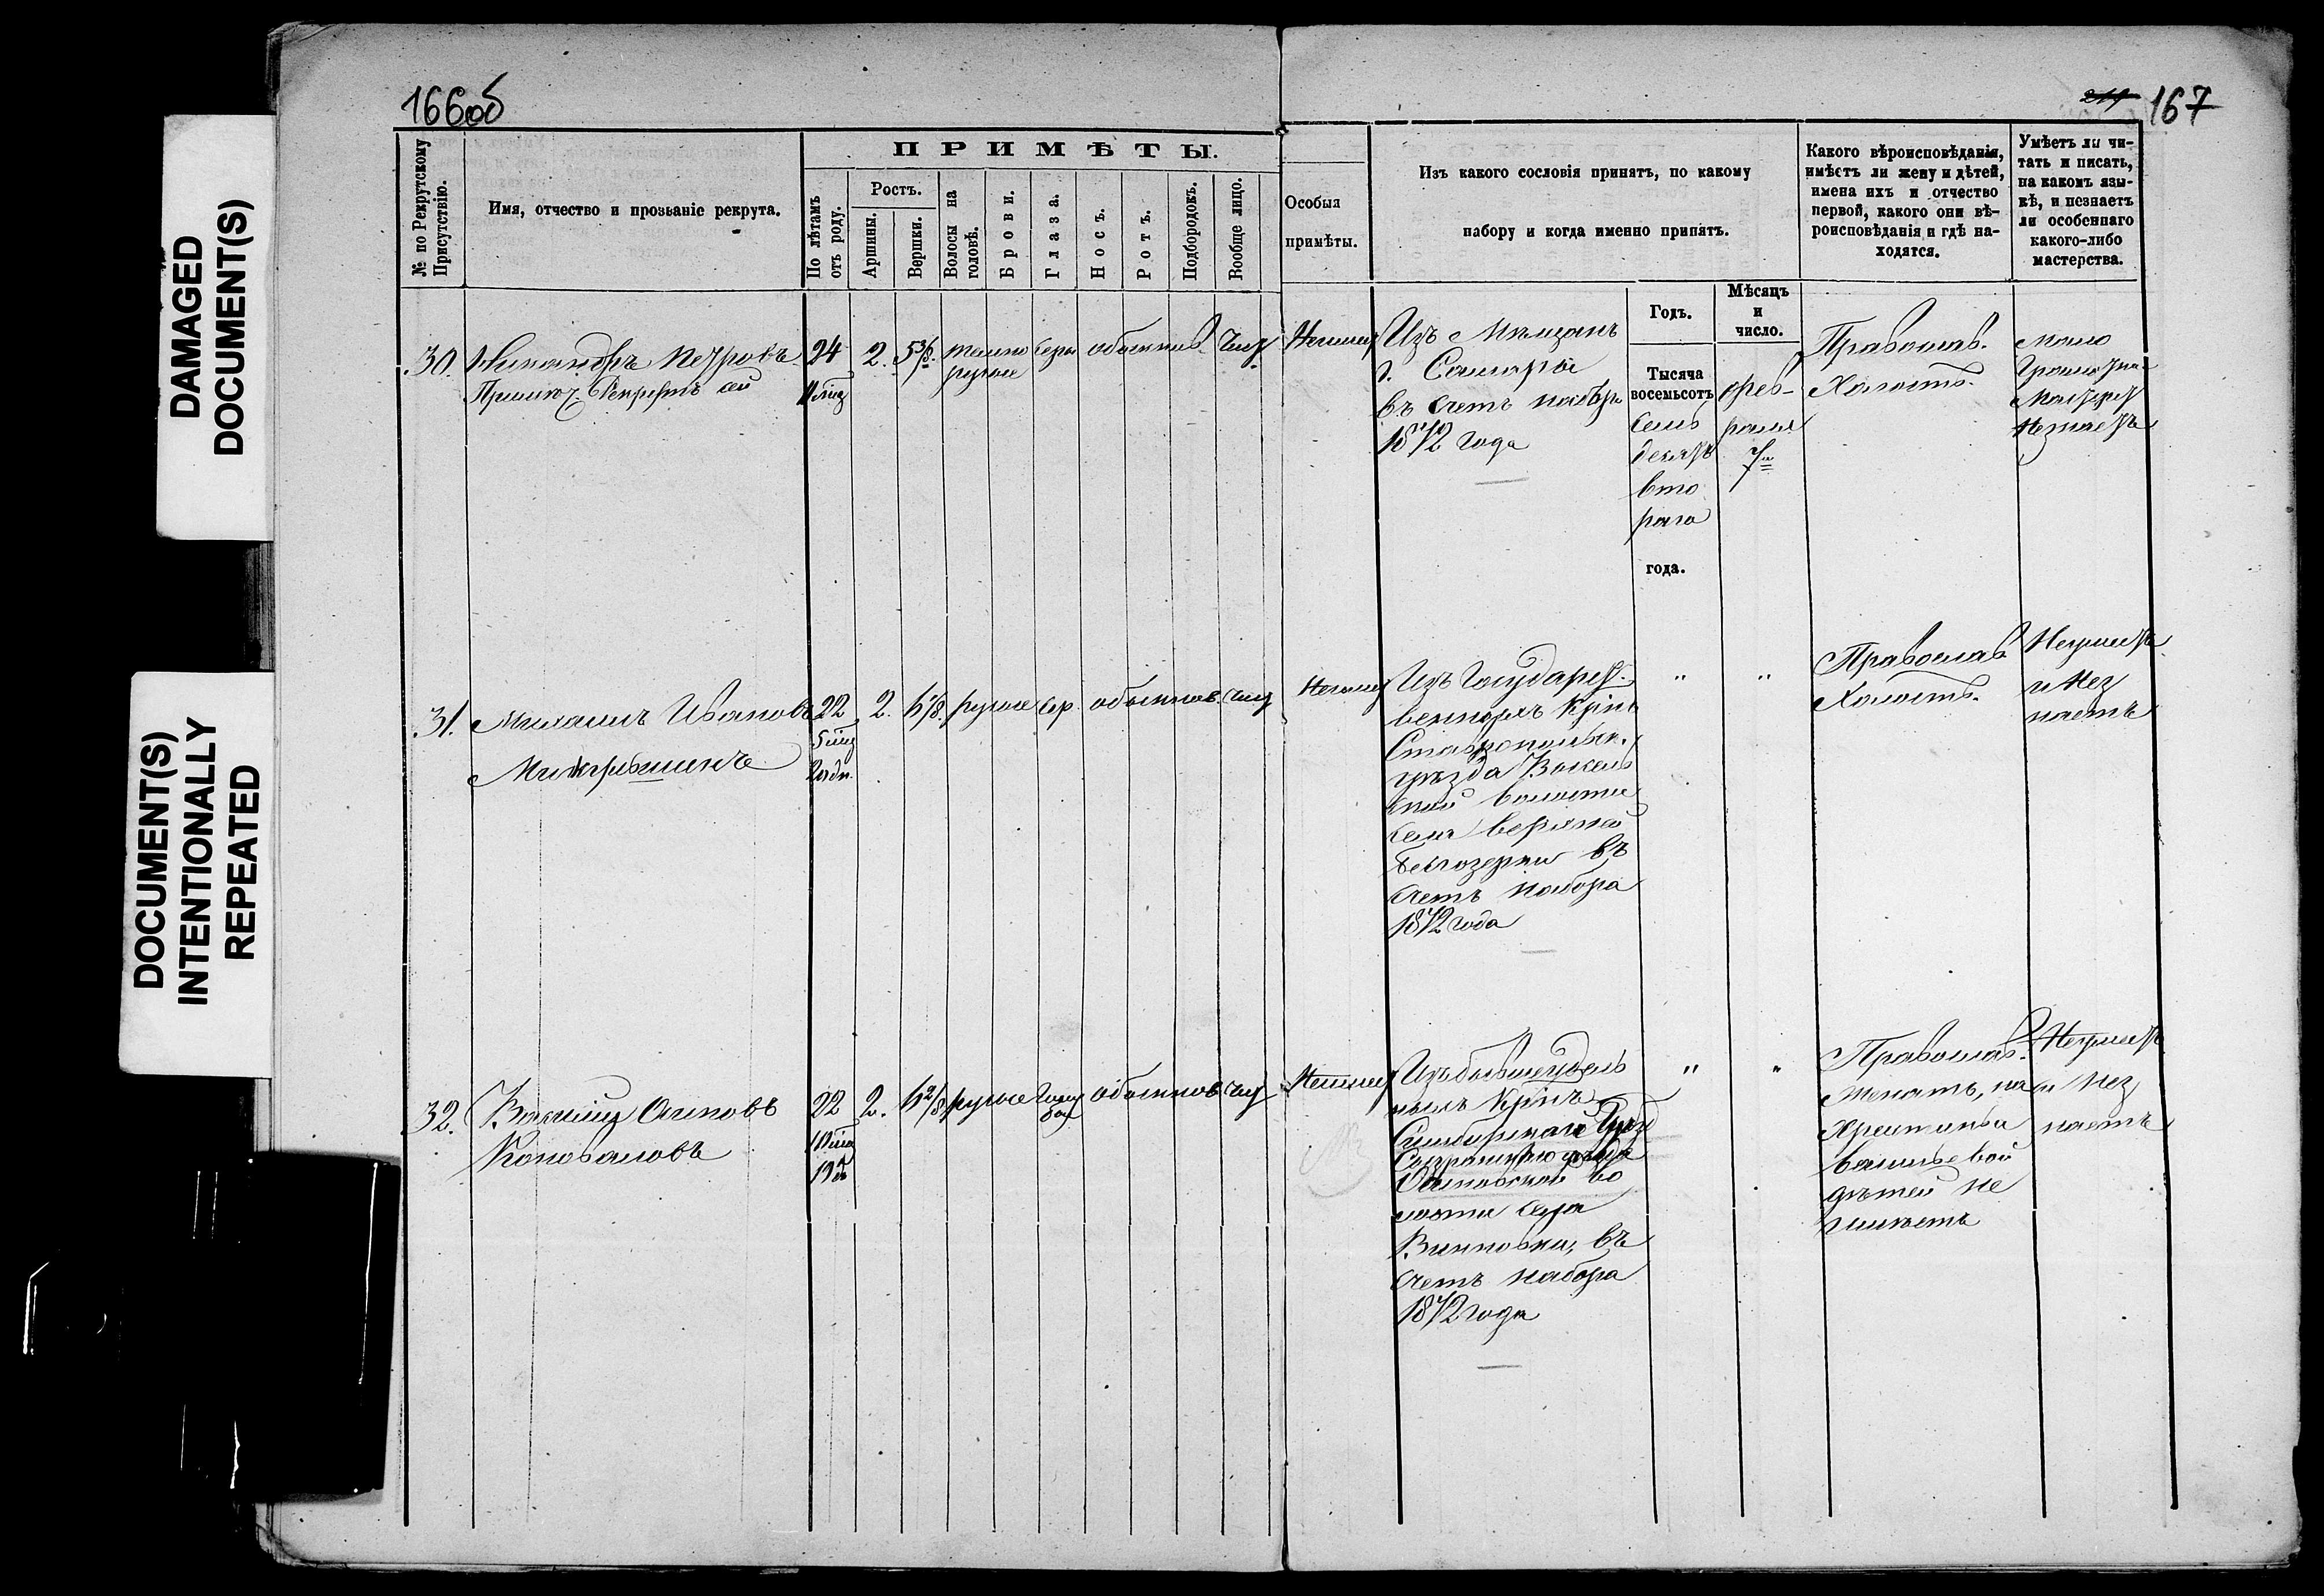 DAMAGED
DOCUMENT(S)
DOCUMENT(S)
INTENTIONALLY
REPEATED
166об
167
№ по Рекрутскому
Присутствію.
Имя, отчество и прозваніе рекрута.
ПРИМѢТЫ.
По лѣтамъ
отъ роду.
Ростъ.
Аршины.
Вершки.
Волосы на
головѣ.
Брови.
Глаза.
Носъ.
Ротъ.
Подбородокъ.
Вообще лицо.
Особыя
примѣты.
Изъ какого сословія принятъ, по какому
набору и когда именно принятъ.
Годъ.
Мѣсяцъ
и
число.
Какого вѣроисповѣданія,
имѣетъ ли жену и дѣтей,
имена ихъ и отчество
первой, какого они вѣ-
роисповѣданія и гдѣ на-
ходятся.
Умѣетъ ли чи-
тать и писать,
на какомъ язы-
кѣ, и незнаетъ
ли особеннаго
какого-либо
мастерства.
30. Никандръ Петровъ 24 2. 5 3/8 темно серы обыкнов. чис
русые
Изъ Мѣщанъ
г. Самары
въ счетъ набора
1872 года
Тысяча
восемьсотъ
семь
десятъ
вто
раго
года.
фев-
раля
7
Православ.
Холостъ.
мало
31. Михаилъ Ивановъ 22 2. русые сер обыкнов чис
Изъ Государст-
венныхъ Крпъ
Ставропольск.
уѣзда
волости
села верхней
Белозерки въ
счетъ набора
1872 года
" "
Православ
Холостъ.
Неумѣетъ
и нез
наетъ
32. Василій Осиповъ 22 2. русые голу обыкнов чис
бые
Коноваловъ
Изъ бывш удѣль
ныхъ Крпъ
Симбирской Губ
Сызранскаго уѣзда
Осиновской во
лости села
Винновки, въ
счетъ набора
1872 года
" "
Православ.
Женатъ, на
дѣтей не
имѣетъ
Неумѣетъ
и нез
наетъ